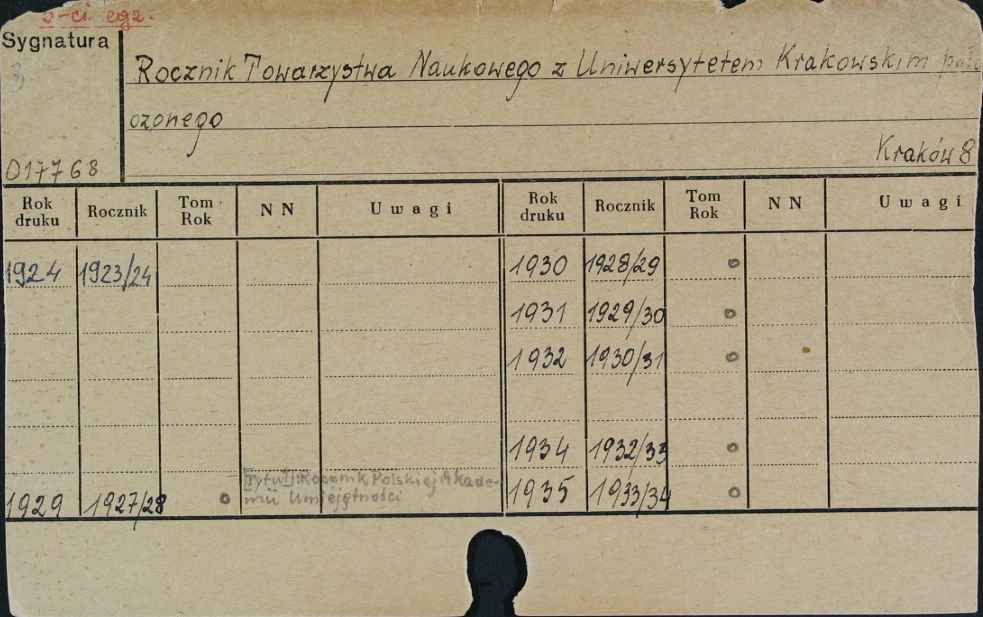 3-ci egz.
Sygnatura
Rocznik Towarzystwa Naukowego z Uniwersytetem Krakowskim połą
czonego
Kraków 8
017768
Rok druku Rocznik Tom Rok NN Uwagi Rok druku Rocznik Tom Rok NN Uwagi
1924 1923/24 1930 1928/29 o
1931 1929/30 o
1932 1930/31 o
1934 1932/33 o
[Tytuł:] Rocznik Polskiej Akade-
mii Umiejętności
1929 1927/28 o 1935 1933/34 o